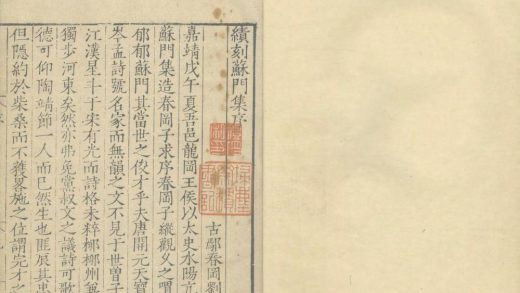 續刻蘇門集序
古鄢春岡劉
嘉靖戊午夏吾邑龍岡王侯以太史水陽亢
蘇門集造春岡子求序春岡子縱觀乂之
郁郁蘇門其當世之俊才乎夫唐開元天寶
岑孟詩號名家而無韻之文不見于世曾子
江漢星斗于宋有光而詩格未粹柳柳州兼
獨步河東矣然亦弗免黨叔文之議詩可歌
德可仰陶靖節一人而已然生也匪辰其忠
但隱約於柴桑而不獲畧施之位謂完才之